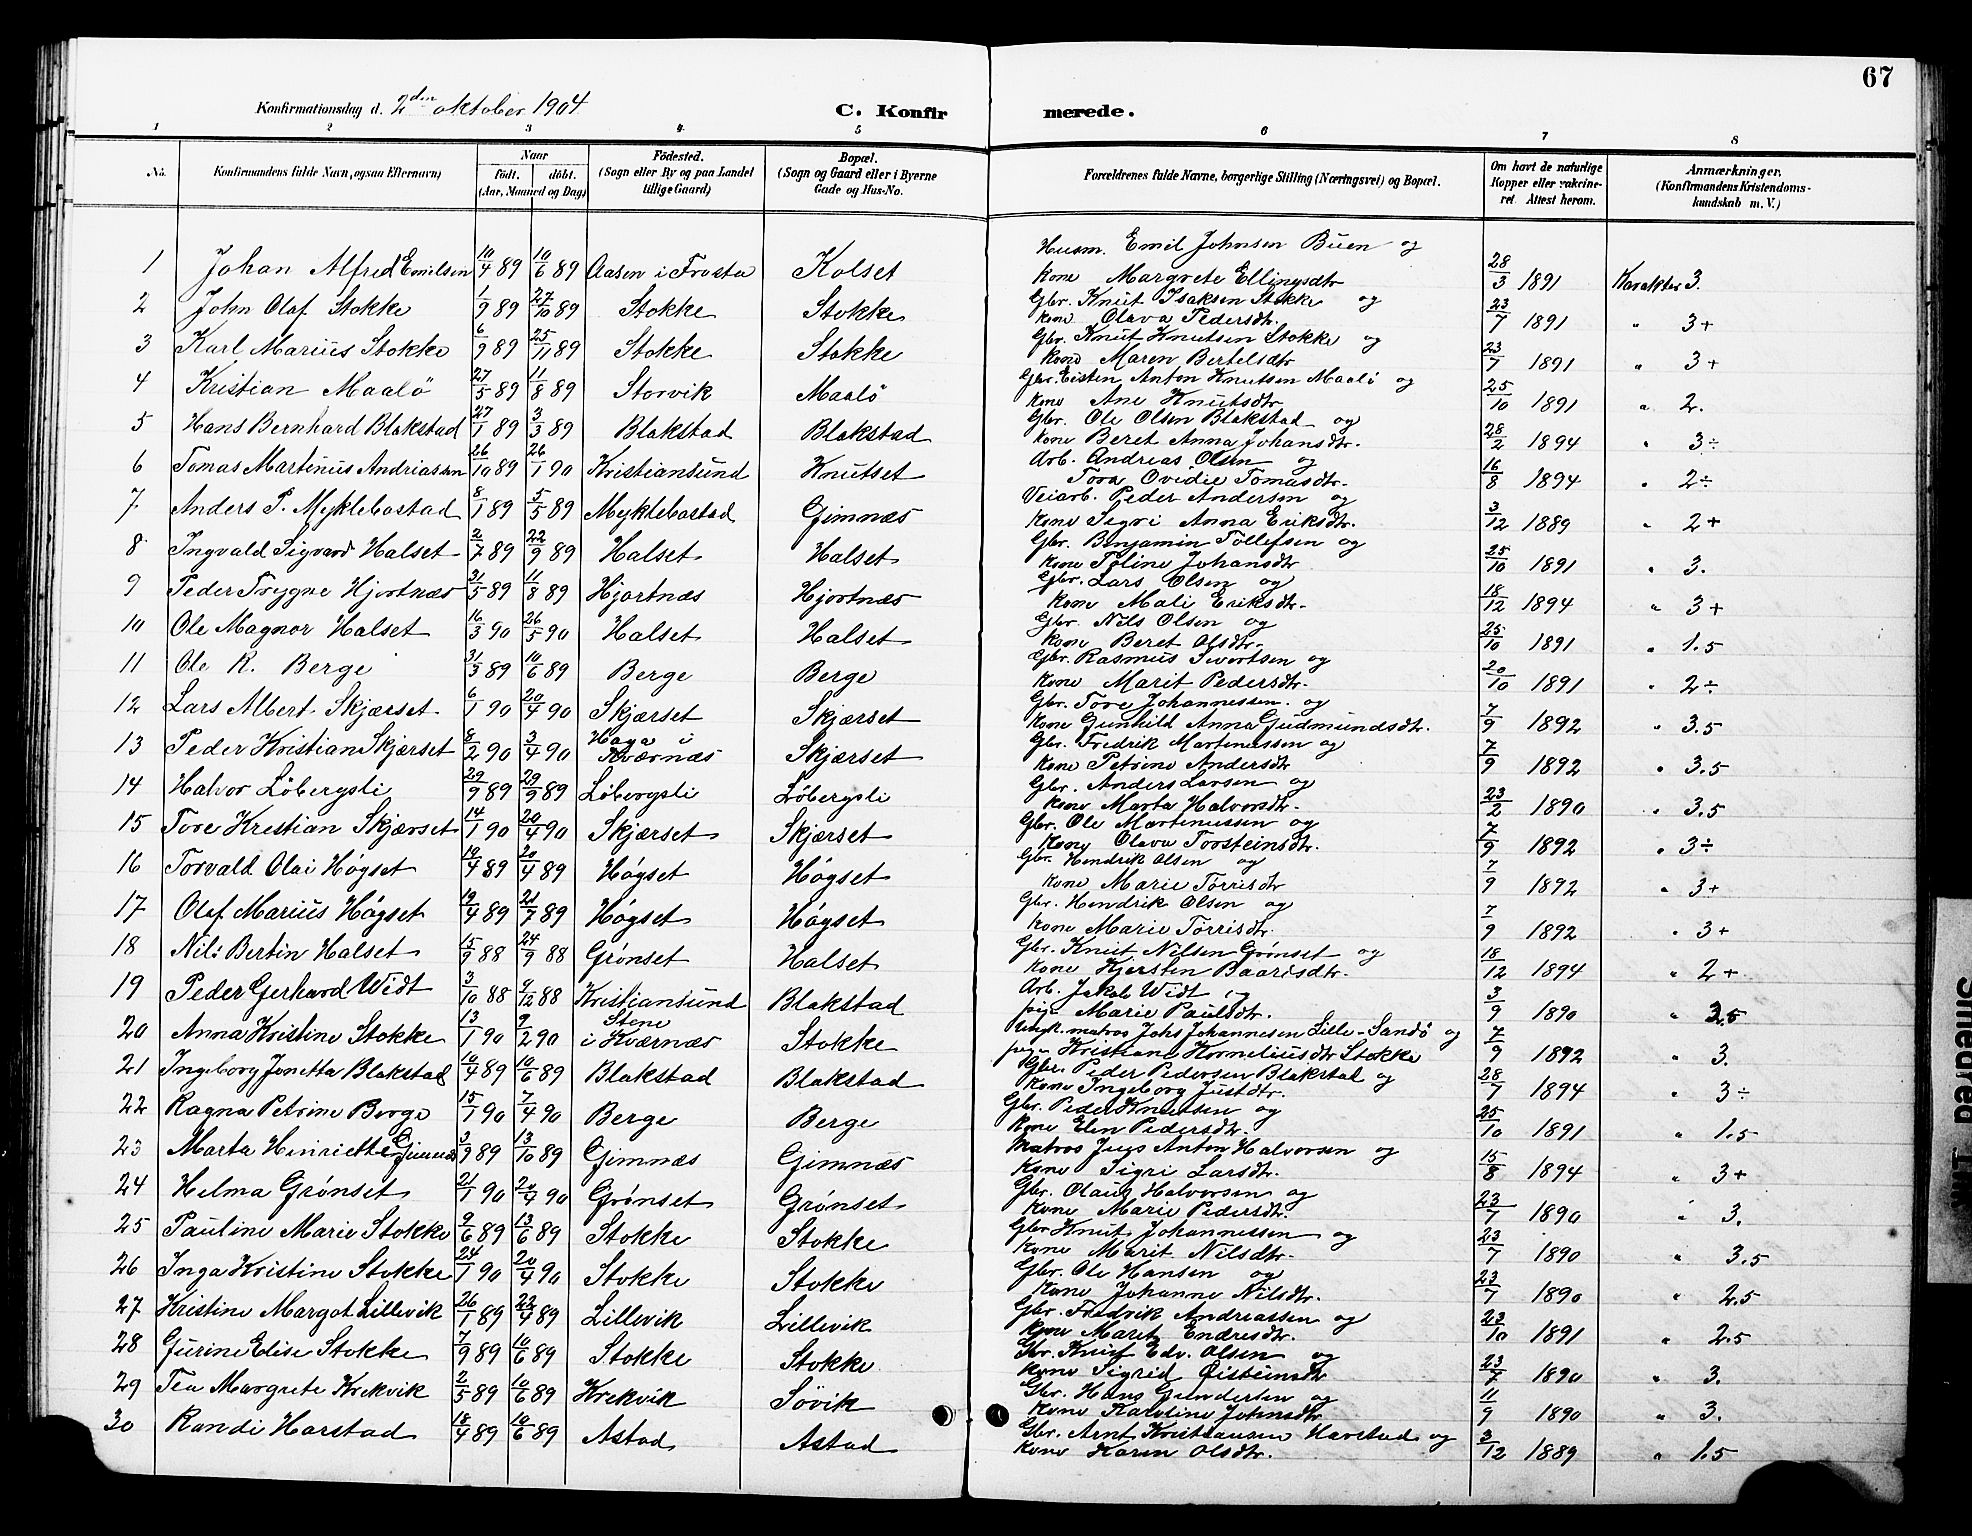 67
Konfirmationsdag d. 2den oktober 1904 C. Konfirmerede.
1 2 3 4 5 6 7 8
No. Konfirmandens fulde Navn, ogsaa Efternavn) Naar født. døbt. (Aar, Maaned og Dag) Fødested. (Sogn eller By og paa Landet tillige Gaard) Bopæl. (Sogn og Gaard eller i Byerne Gade og Hus-No. Forældrenes fulde Navne, borgerlige Stilling (Næringsvei) og Bopæl. Om havt de naturlige Kopper eller vakcineret Attest herom. Anmærkninger. (Konfirmandens Kristendomskundskab m. V.)
1 Johan Alfred Emilsen 10/4 89 10/6 89 Aasen i Frosta Kolset Husm. Emil Johnsen Buen og
kone Margrete Ellingsdtr 28/3 1891 Karakter 3.
2 John Olaf Stokke 1/9 89 27/10 89 Stokke Stokke Gbr. Knut Isaksen Stokke og
kone Olava Pedersdtr. 23/7 1891 " 3+
3 Karl Marius Stokke 6/9 89 25/11 89 Stokke Stokke Gbr. Knut Knutsen Stokke og
kone Maren Bertelsdtr 23/7 1891 " 3+
4 Kristian Maalö 27/5 89 11/8 89 Storvik Maalö Gbr. Eisten Anton Knutsen Maalö og
kone Ane Knutsdtr 25/10 1891 " 2.
5 Hans Bernhard Blakstad 27/1 89 3/3 89 Blakstad Blakstad Gbr. Ole Olsen Blakstad og
kone Beret Anna Johansdtr. 28/2 1894 " 3÷
6 Tomas Martinus Andriassen 26/10 89 26/1 90 Kristiansund Knutset Arb. Andreas Olsen og
Tora Ovidie Tomasdtr. 16/8 1894 " 2÷
7 Anders P. Myklebostad 8/1 89 5/5 89 Myklebostad Gimnæs Veiarb. Peder Andersen og
kone Sigri Anna Eriksdtr. 3/12 1889 " 2+
8 Ingvald Sigvard Halset 2/7 89 22/9 89 Halset Halset Gbr. Benjamin Tollefsen og
kone Toline Johansdtr 25/10 1891 " 3.
9 Peder Trygve Hjortnæs 31/5 89 11/8 89 Hjortnæs Hjortnæs Gbr. Lars Olsen og
kone Mali Eriksdtr. 18/12 1894 " 3+
10 Ole Magnor Halset 16/3 90 26/5 90 Halset Halset Gbr. Nils Olsen og
kone Beret Olsdtr. 25/10 1891 " 1.5
11 Ole R. Berge 31/3 89 10/6 89 Berge Berge Gbr. Rasmus Ivertsen og
kone Marit Pedersdtr. 20/10 1891 " 2÷
12 Lars Albert Skjærset 6/1 90 20/4 90 Skjærset Skjærset Gbr. Tore Johannessen og
kone Gunhild Anna Gudmundsdtr. 7/9 1892 " 3.5
13 Peder Kristian Skjærset 8/2 90 3/4 90 Haga i Kværnæs Skjærset Gbr. Fredrik Martinussen og
kone Petrine Andersdtr 7/9 1892 " 3.5
14 Halvor Löbergsli 29/9 89 29/9 89 Löbergsli Löbergsli Gbr. Anders Larsen og
kone Marta Halvorsdtr. 23/2 1890 " 3.5
15 Tore Kristian Skjærset 14/1 90 20/4 90 Skjærset Skjærset Gbr. Ole Martinussen og
kone Olava Torsteinsdtr. 7/9 1892 " 3÷
16 Torvald Olai Høgset 19/4 89 20/4 89 Høgset Høgset Gbr. Hendrik Olsen og
kone Marie Torrisdtr 7/9 1892 " 3+
17 Olaf Marius Høgset 19/4 89 21/7 89 Høgset Høgset Gbr. Hendrik Olsen og
kone Marie Torrisdtr. 7/9 1892 " 3+
18 Nils Bertin Halset 15/9 88 24/9 88 Grønset Halset Gbr. Knut Nilsen Grønset og
kone Kjersten Baardsdtr. 18/12 1894 " 2+
19 Peder Gerhard Widt 3/10 88 9/12 88 Kristiansund Blakstad Arb. Jakob Widt og
pige Marie Paulsdtr. 3/9 1890 " 2.5
20 Anna Kristine Stokke 13/1 90 9/2 90 Stene i Kværnæs Stokke Ungk. matros Johs Johannesen Lille-Sandö og
pige Kristiane Korneliusdtr Stokke 7/9 1892 " 3.
21 Ingeborg Jonetta Blakstad 10/4 89 10/6 89 Blakstad Blakstad Gbr. Peder Pedersen Blakstad og
kone Ingeborg Justdtr. 28/7 1894 " 3÷
22 Ragna Petrine Berge 15/1 90 7/4 90 Berge Berge Gbr. Peder Knutsen og
kone Elen Pedersdtr. 25/10 1891 " 1.5
23 Marta Henriette Gimnæs 3/9 89 13/10 89 Gimnæs Gimnæs Matros Jens Anton Halvorsen og
kone Sigri Larsdtr. 15/8 1894 " 3+
24 Helma Grønset 21/1 90 20/4 90 Grønset Grønset Gbr. Olaus Halvorsen og
kone Marie Pedersdtr. 23/7 1890 " 3.
25 Pauline Marie Stokke 9/6 89 13/6 89 Stokke Stokke Gbr Knut Johannessen og
kone Marit Nilsdtr. 23/7 1890 " 3.5
26 Inga Kristine Stokke 24/1 90 20/4 90 Stokke Stokke Gbr. Ole Hansen og
kone Johanne Nilsdtr. 23/7 1890 " 2.5
27 Kristine Margot Lillevik 26/1 89 22/4 89 Lillevik Lillevik Gbr. Fredrik Andreassen og
kone Maret Endresdtr. 23/10 1891 " 2.5
28 Gurine Elise Stokke 7/9 89 10/6 89 Stokke Stokke Gbr. Knut Edv. Olsen og
kone Sigrid Øisteinsdtr 23/7 1890 " 3.
29 Tea Margrete Krekvik 2/5 89 10/6 89 Krekvik Sövik Gbr. Hans Gundersen og
kone Karoline Johnsdtr 11/9 1890 " 3.
30 Randi Harstad 18/4 89 10/6 89 Astad Astad Gbr. Arnt Kristiansen Harstad og
kone Karen Olsdtr. 3/12 1889 " 1.5